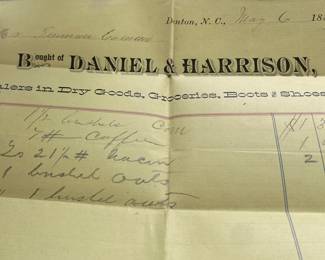 Denton, N. C., May 6 18
Bought of DANIEL & HARRISON,
Dealers in Dry Goods, Groceries, Boots & Shoes
1/2 bushel Corn $1
7# Coffee 1
To 21 1/2 # bacon 2
1 bushel oats
" 1 bushel oats